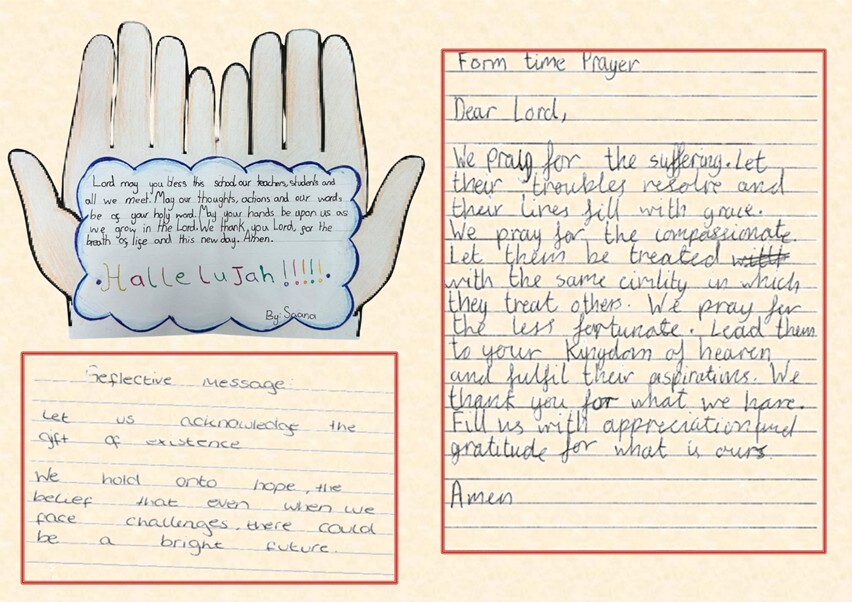 Lord may you bless this school, our teachers, students and
all we meet. May our thoughts, actions and our words
be of your holy word. May your hands be upon us as
we grow in the Lord. We thank, you Lord, for the
breath of life and this new day. Amen.
Hallelujah!!!!!.
By: Saana
Reflective message:
Let us acknowledge the
gift of existence
We hold onto hope, the
belief that even when we
face challenges, there could
be a bright future.
Form time Prayer
Dear Lord,
We pray for the suffering. Let
their troubles resolve and
their lives fill with grace.
We pray for the compassionate.
Let them be treated with
with the same civility in which
they treat others. We pray for
the less fortunate. Lead them
to your Kingdom of heaven
and fulfil their aspirations. We
thank you for what we have.
Fill us with appreciation and
gratitude for what is ours.
Amen